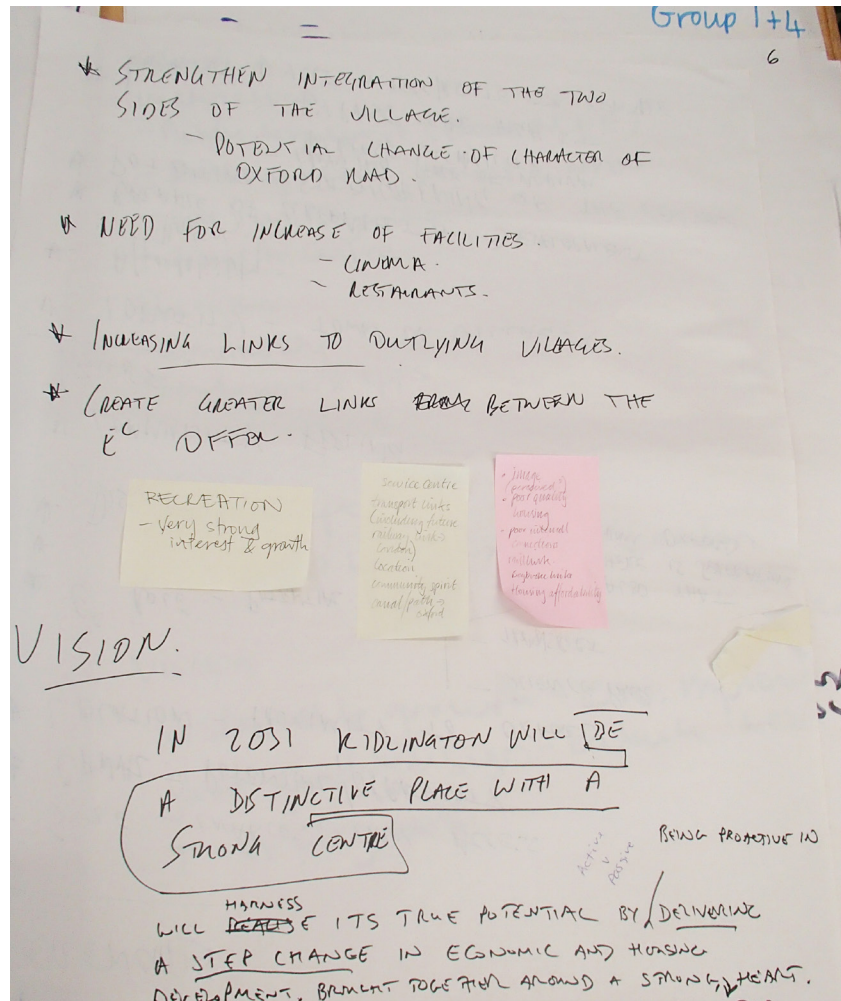 Group 1+4
6
* STRENGTHEN INTEGRATION OF THE TWO
SIDES OF THE VILLAGE.
- POTENTIAL CHANGE OF CHARACTER OF
OXFORD ROAD.
* NEED FOR INCREASE OF FACILITIES.
- CINEMA.
- RESTAURANTS.
* INCREASING LINKS TO OUTLYING VILLAGES.
* CREATE GREATER LINKS BETWEEN THE
OFFER.
RECREATION
- Very strong
interest & growth
Service Centre
transport links
(including future
railway links
London)
Location
community spirit
canal/path →
• Image
• poor quality
housing
- poor internal
connections
Housing affordability
VISION.
IN 2031 KIDLINGTON WILL BE
A DISTINCTIVE PLACE WITH A
STRONG CENTRE
Active
v
Passive
BEING PROACTIVE IN
HARNESS
WILL ITS TRUE POTENTIAL BY DELIVERING
A STEP CHANGE IN ECONOMIC AND HOUSING
DEVELOPMENT, BROUGHT TOGETHER AROUND A STRONG HEART.